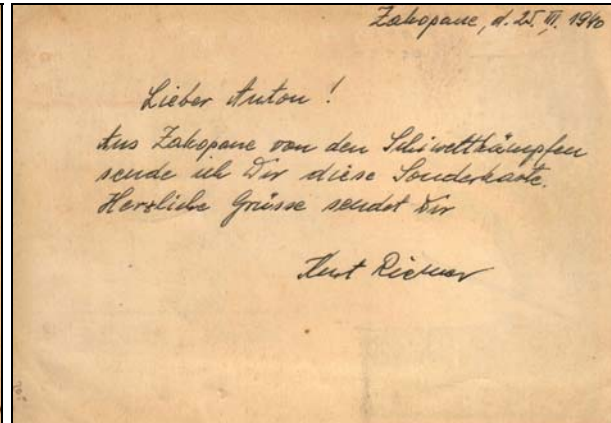 Zakopane, d. 25. III. 1940
Lieber Anton !
Aus Zakopane von den Schiwettkämpfen
sende ich Dir diese Sonderkarte.
Herzliche Grüsse sendet Dir
Kurt